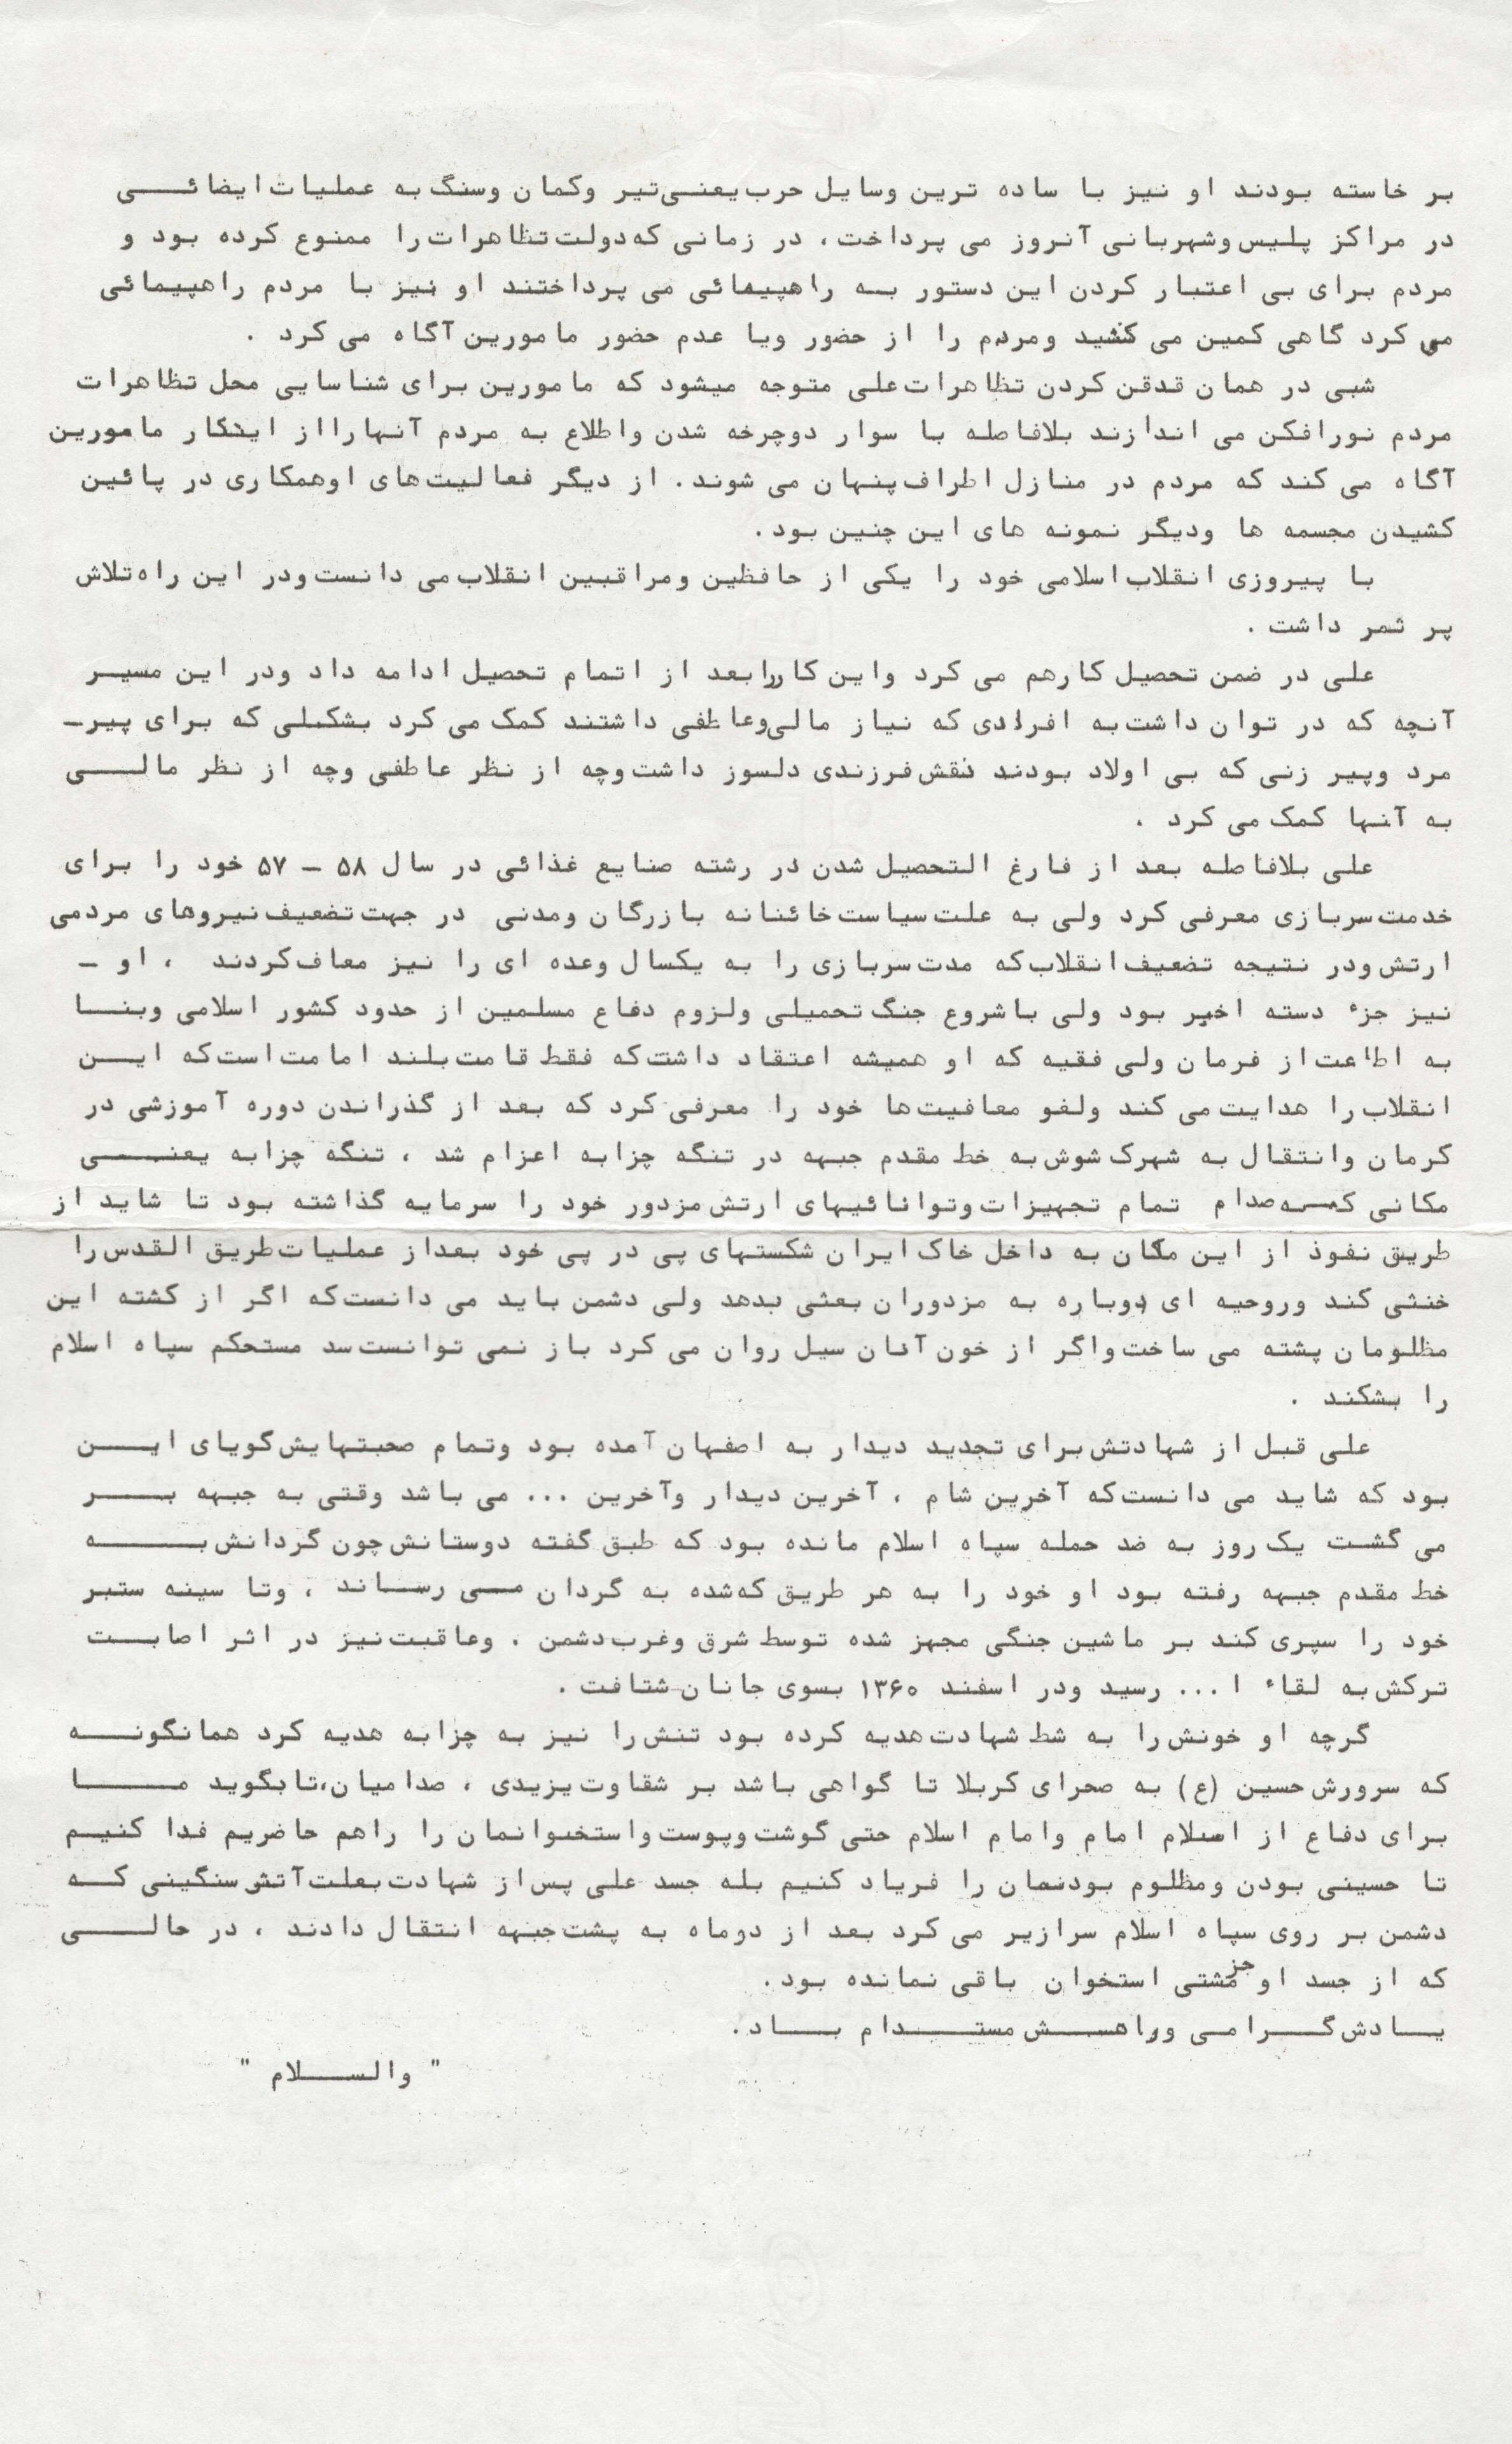 بر خاسته بودند او نیز با ساده ترین وسایل حرب یعنی تیر وکمان وسنگ به عملیات ایضائی
در مراکز پلیس وشهربانی آنروز می پرداخت، در زمانی که دولت تظاهرات را ممنوع کرده بود و
مردم برای بی اعتبار کردن این دستور به راهپیمائی می پرداختند او نیز با مردم راهپیمائی
می کرد گاهی کمین می کشید ومردم را از حضور ویا عدم حضور مامورین آگاه می کرد .
شبی در همان قدقن کردن تظاهرات علی متوجه میشود که مامورین برای شناسایی محل تظاهرات
مردم نورافکن می اندازند بلافاصله با سوار دوچرخه شدن واطلاع به مردم آنهارااز اینکار مامورین
آگاه می کند که مردم در منازل اطراف پنهان می شوند. از دیگر فعالیت‌های اوهمکاری در پائین
کشیدن مجسمه ها ودیگر نمونه های این چنین بود.
با پیروزی انقلاب اسلامی خود را یکی از حافظین ومراقبین انقلاب می دانست ودر این راه تلاش
پر ثمر داشت .
علی در ضمن تحصیل کارهم می کرد واین کاررا بعد از اتمام تحصیل ادامه داد ودر این مسیر
آنچه که در توان داشت به افرادی که نیاز مالی وعاطفی داشتند کمک می کرد بشکلی که برای پیر-
مرد وپیر زنی که بی اولاد بودند نقش فرزندی دلسوز داشت وچه از نظر عاطفی وچه از نظر مالی
به آنها کمک می کرد .
علی بلافاصله بعد از فارغ التحصیل شدن در رشته صنایع غذائی در سال ۵۸ - ۵۷ خود را برای
خدمت سربازی معرفی کرد ولی به علت سیاست خائنانه بازرگان ومدنی در جهت تضعیف نیروهای مردمی
ارتش ودر نتیجه تضعیف انقلاب که مدت سربازی را به یکسال وعده ای را نیز معاف کردند ، او -
نیز جزء دسته اخیر بود ولی با شروع جنگ تحمیلی ولزوم دفاع مسلمین از حدود کشور اسلامی وبنا
به اطاعت از فرمان ولی فقیه که او همیشه اعتقاد داشت که فقط قامت بلند امامت است که این
انقلاب را هدایت می کند ولغو معافیت‌ها خود را معرفی کرد که بعد از گذراندن دوره آموزشی در
کرمان وانتقال به شهرک شوش به خط مقدم جبهه در تنگه چزابه اعزام شد ، تنگه چزابه یعنی
مکانی که صدام تمام تجهیزات وتوانائیهای ارتش مزدور خود را سرمایه گذاشته بود تا شاید از
طریق نفوذ از این مکان به داخل خاک ایران شکستهای پی در پی خود بعداز عملیات طریق القدس را
خنثی کند وروحیه ای دوباره به مزدوران بعثی بدهد ولی دشمن باید می دانست که اگر از کشته این
مظلومان پشته می ساخت واگر از خون آنان سیل روان می کرد باز نمی توانست سد مستحکم سپاه اسلام
را بشکند .
علی قبل از شهادتش برای تجدید دیدار به اصفهان آمده بود وتمام صحبتهایش گویای این
بود که شاید می دانست که آخرین شام ، آخرین دیدار وآخرین ... می باشد وقتی به جبهه بر
می گشت یک روز به ضد حمله سپاه اسلام مانده بود که طبق گفته دوستانش چون گردانش به
خط مقدم جبهه رفته بود او خود را به هر طریق که شده به گردان می رساند ، وتا سینه ستبر
خود را سپری کند بر ماشین جنگی مجهز شده توسط شرق وغرب دشمن . وعاقبت نیز در اثر اصابت
ترکش به لقاء ا ... رسید ودر اسفند ۱۳۶۰ بسوی جانان شتافت .
گرچه او خونش را به شط شهادت هدیه کرده بود تنش را نیز به چزابه هدیه کرد همانگونه
که سرورش حسین (ع) به صحرای کربلا تا گواهی باشد بر شقاوت یزیدی ، صدامیان،تا بگوید ما
برای دفاع از اسلام امام وامام اسلام حتی گوشت وپوست واستخوانمان را راهم حاضریم فدا کنیم
تا حسینی بودن ومظلوم بودنمان را فریاد کنیم بله جسد علی پس از شهادت بعلت آتش سنگینی که
دشمن بر روی سپاه اسلام سرازیر می کرد بعد از دوماه به پشت جبهه انتقال دادند ، در حالی
که از جسد او جز مشتی استخوان باقی نمانده بود.
یادش گرامی وراهش مستدام باد.
" والسلام "